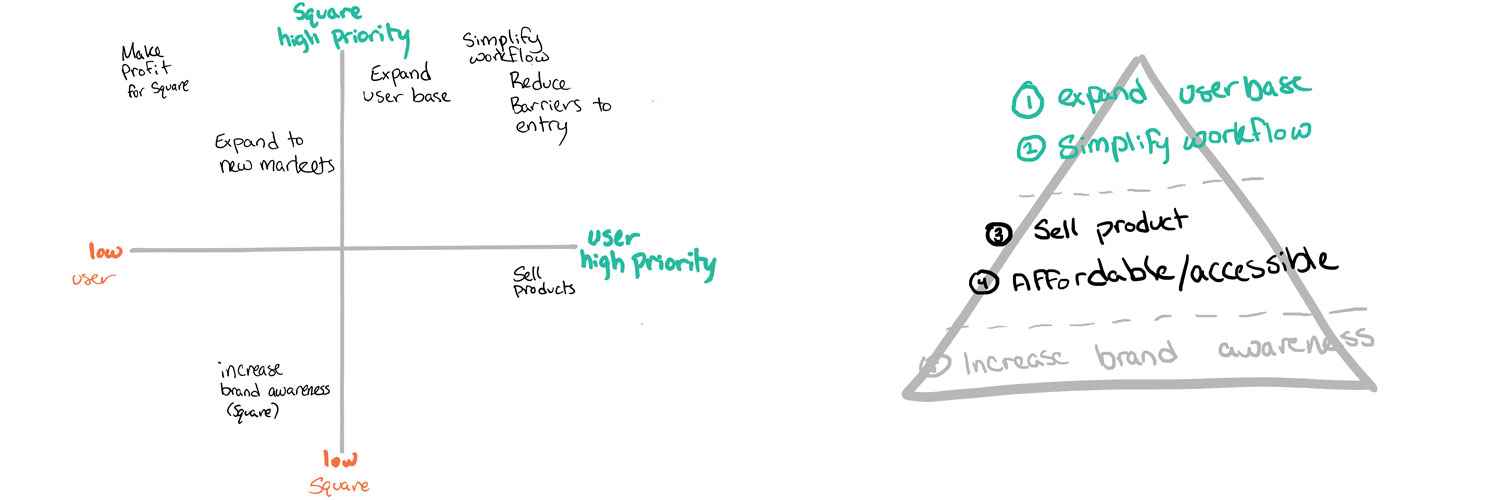 Square
high priority
Make
Profit
for Square
Expand
user base
Simplify
workflow
Reduce
Barriers to
entry
Expand to
new markets
low
user
user
high priority
Sell
products
increase
brand awareness
(Square)
low
Square
1 expand userbase
2 Simplify workflow
3 Sell product
4 Affordable/accessible
5 Increase brand awareness